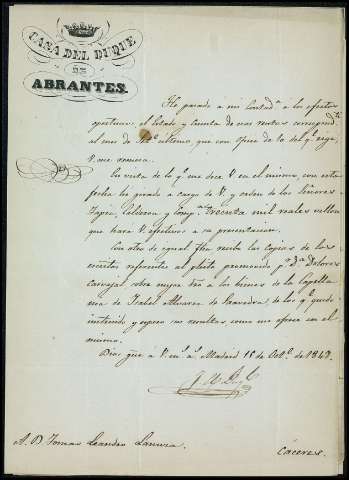 CASA DEL DUQUE
DE
ABRANTES.
He pasado a mi Contadª a los efectos
oportunos el Estado y Cuenta de esas rentas correspondte
al mes de 7bre ultimo, que con oficio de 10 del qe rige,
V. me remesa.
En vista de lo qe me dice V. en el mismo, con esta
fecha he girado a cargo de V. y orden de los Señores
Lopez, Calderon y Compª treinta mil reales vellon
que hará V. efectivos a su presentacion.
Con otro de igual fha recibo las copias de los
escritos referentes al pleito promovido pr Dª Dolores
Carvajal sobre mejor dro á los bienes de la Capella
nia de Isabel Alvarez de Saavedra, de los qe quedo
instruido y espero su resultas como me ofrece en el
mismo.
Dios gue a V. ms as Madrid 15 de Octe de 1849.
A. D Tomas Leandro
Cáceres.